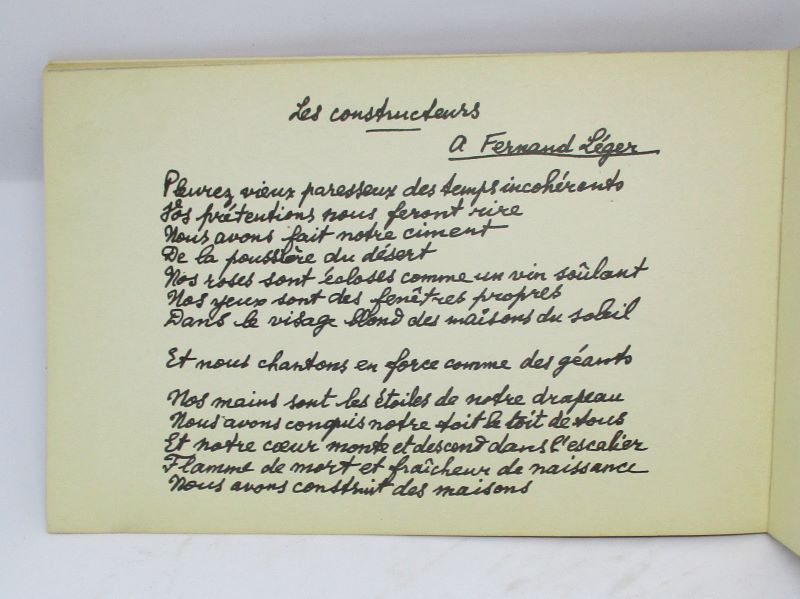 Les constructeurs
A Fernand Léger
Pleurez vieux paresseux des temps incohérents
Vos prétentions nous feront rire
Nous avons fait notre ciment
De la poussière du désert
Nos roses sont écloses comme un vin soûlant
Nos yeux sont des fenêtres propres
Dans le visage blond des maisons du soleil
Et nous chantons en force comme des géants
Nos mains sont les étoiles de notre drapeau
Nous avons conquis notre toit le toit de tous
Et notre cœur monte et descend dans l'escalier
Flamme de mort et fraîcheur de naissance
Nous avons construit des maisons